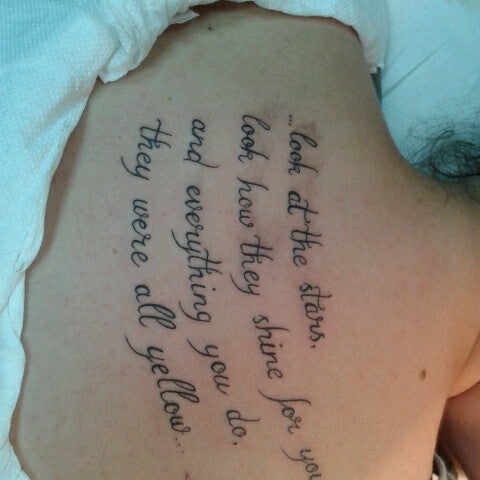 ...look at the stars,
look how they shine for you
and everything you do,
they were all yellow...